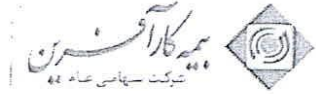 بیمه کارآفرین
شرکت سهامی عام